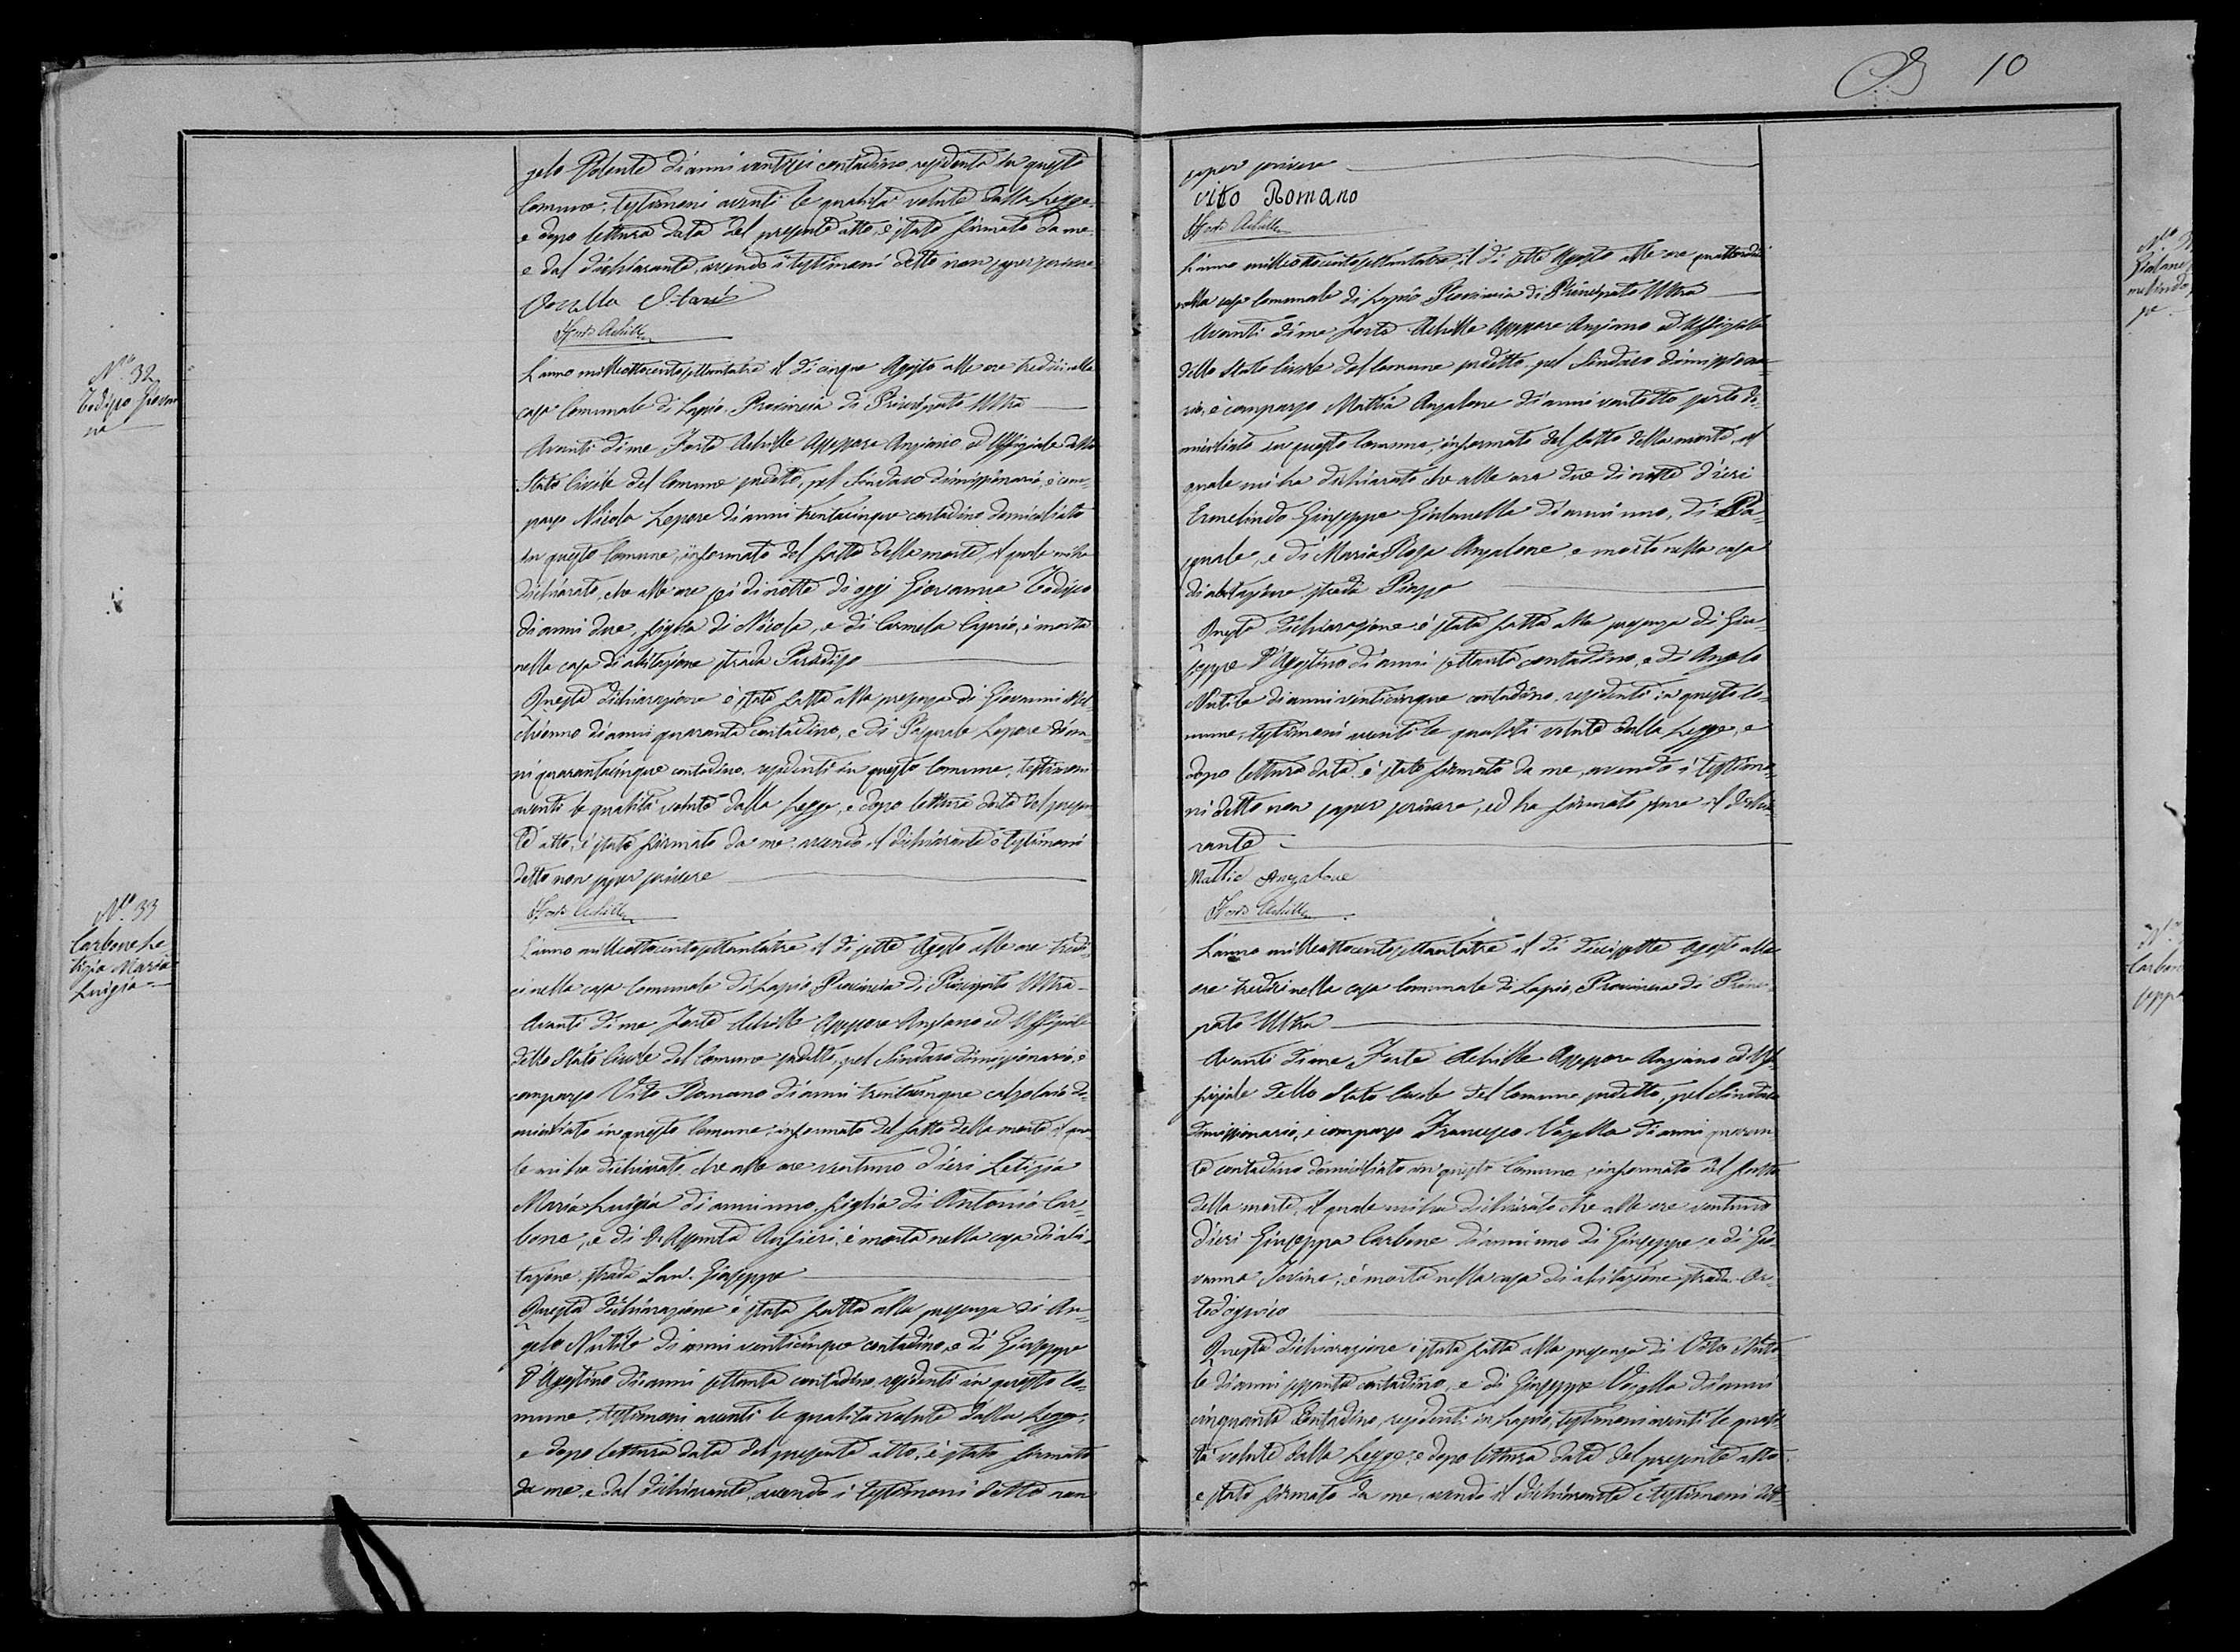 10
gelo Polente di anni ventisei contadino residenti in questo
Comune, testimoni aventi le qualità volute dalla Legge,
e dopo lettura data del presente atto, è stato firmato da me
e dal dichiarante, avendo i testimoni detto non saper scrivere
Forte Achille
N.º 32
Todisco Giovan
na
L'anno milleottocentosettantatre il dì cinque Agosto alle ore tredici nella
casa Comunale di Lapio, Provincia di Principato Ultra
Avanti di me Forte Achille Assessore Anziano ed Uffiziale dello
Stato Civile del Comune sudetto, pel Sindaco dimissionario, è com-
parso Nicola Lepore di anni trentacinque contadino domiciliato
in questo Comune, informato del fatto della morte, il quale mi ha
dichiarato, che alle ore sei di notte di oggi Giovanna Todisco
di anni due, figlia di Nicola, e di Carmela Ciprio, è morta
nella casa di abitazione strada Paradiso
Questa dichiarazione è stata fatta alla presenza di Giovanni Mel-
chionno di anni quaranta contadino, e di Pasquale Lepore di an-
ni quarantacinque contadino, residenti in questo Comune, testimoni
aventi le qualità volute dalla Legge, e dopo lettura data del presen-
te atto, è stato firmato da me avendo il dichiarante e testimoni
detto non saper scrivere
Forte Achille
N.º 33
Carbone Le
tizia Maria
Luigia
L'anno milleottocentosettantatre il dì sette Agosto alle ore tredi-
ci nella casa Comunale di Lapio, Provincia di Principato Ultra
Avanti di me Forte Achille Assessore Anziano ed Uffiziale
dello Stato Civile del Comune sudetto, pel Sindaco dimissionario, è
comparso Vito Romano di anni trentacinque calzolaio do-
miciliato in questo Comune, informato del fatto della morte, il qua-
le mi ha dichiarato, che alle ore ventuno d'ieri Letizia
Maria Luigia di anni uno, figlia di Antonio Car-
bone, e di Assunta Anzieri, è morta nella casa di abi-
tazione strada San Giuseppe
Questa dichiarazione è stata fatta alla presenza di An-
gelo Nutile di anni venticinque contadino, e di Giuseppe
D'Agostino di anni settanta contadino, residenti in questo Co-
mune, testimoni aventi le qualità volute dalla Legge,
e dopo lettura data del presente atto, è stato firmato
da me, e dal dichiarante, avendo i testimoni detto non
saper scrivere
Vito Romano
Forte Achille
L'anno milleottocentosettantatre, il dì sette Agosto alle ore quattordici
nella casa Comunale di Lapio Provincia di Principato Ultra
Avanti di me Forte Achille Assessore Anziano ed Uffiziale
dello Stato Civile del Comune sudetto, pel Sindaco dimissiona-
rio, è comparso Mattia Anzalone di anni ventotto sarto do-
miciliato in questo Comune, informato del fatto della morte, il
quale mi ha dichiarato che alle ora due di notte d'ieri
Ermelindo Giuseppe Giulanella di anni uno, di Pa-
squale, e di Maria Rosa Anzalone, è morto nella casa
di abitazione strada Piazza
Questa dichiarazione è stata fatta alla presenza di Giu-
seppe D'Agostino di anni settanta contadino, e di Angelo
Nutile di anni venticinque contadino, residenti in questo Co-
mune, testimoni aventi le qualità volute dalla Legge, e
dopo lettura data è stato firmato da me, avendo i testimo-
ni detto non saper scrivere, ed ha firmato pure il dichia-
rante
Mattia Anzalone
Forte Achille
L'anno milleottocentosettantatre il dì diciasette Agosto alle
ore tredici nella casa Comunale di Lapio, Provincia di Princi-
pato Ultra
Avanti di me Forte Achille Assessore Anziano ed Uf-
fiziale dello Stato Civile del Comune sudetto, pel Sindaco
dimissionario, è comparso Francesco Vozella di anni quaran-
ta contadino domiciliato in questo Comune, informato del fatto
della morte, il quale mi ha dichiarato che alle ore ventuno
d'ieri Giuseppa Carbone di anni uno di Giuseppe, e di Gio-
vanna Iovine, è morta nella casa di abitazione strada
Questa dichiarazione è stata fatta alla presenza di Vito Nuti-
le di anni sessanta contadino, e di Giuseppe Vozella di anni
cinquanta contadino, residenti in Lapio, testimoni aventi le quali-
tà volute dalla Legge, e dopo lettura data del presente atto
è stato firmato da me, avendo il dichiarante e testimoni det-